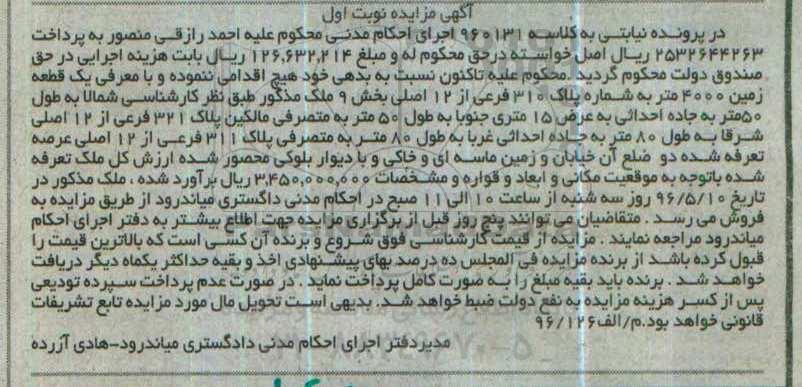 آگهی مزایده نوبت اول
در پرونده نیابتی به کلاسه ۹۶۰۱۳۱ اجرای احکام مدنی محکوم علیه احمد رازقی منصور به پرداخت
۲۵۳۲۶۴۴۲۶۳ ریال اصل خواسته درحق محکوم له و مبلغ ۱۲۶,۶۳۲,۲۱۴ ریال بابت هزینه اجرایی در حق
صندوق دولت محکوم گردید .محکوم علیه تاکنون نسبت به بدهی خود هیچ اقدامی ننموده و با معرفی یک قطعه
زمین ۴۰۰۰ متر به شماره پلاک ۳۱۰ فرعی از ۱۲ اصلی بخش ۹ ملک مذکور طبق نظر کارشناسی شمالا به طول
۵۰متر به جاده احداثی به عرض ۱۵ متری جنوبا به طول ۵۰ متر به متصرفی مالکین پلاک ۳۲۱ فرعی از ۱۲ اصلی
شرقا به طول ۸۰ متر به جاده احداثی غربا به طول ۸۰ متر به متصرفی پلاک ۳۱۱ فرعی از ۱۲ اصلی عرصه
تعرفه شده دو ضلع آن خیابان و زمین ماسه ای و خاکی و با دیوار بلوکی محصور شده ارزش کل ملک تعرفه
شده باتوجه به موقعیت مکانی و ابعاد و قواره و مشخصات ۳,۴۵۰,۰۰۰,۰۰۰ ریال برآورد شده ، ملک مذکور در
تاریخ ۹۶/۵/۱۰ روز سه شنبه از ساعت ۱۰ الی ۱۱ صبح در احکام مدنی دادگستری میاندرود از طریق مزایده به
فروش می رسد . متقاضیان می توانند پنج روز قبل از برگزاری مزایده جهت اطلاع بیشتر به دفتر اجرای احکام
میاندرود مراجعه نمایند . مزایده از قیمت کارشناسی فوق شروع و برنده آن کسی است که بالاترین قیمت را
قبول کرده باشد از برنده مزایده فی المجلس ده درصد بهای پیشنهادی اخذ و بقیه حداکثر یکماه دیگر دریافت
خواهد شد . برنده باید بقیه مبلغ را به صورت کامل پرداخت نماید . در صورت عدم پرداخت سپرده تودیعی
پس از کسر هزینه مزایده به نفع دولت ضبط خواهد شد. بدیهی است تحویل مال مورد مزایده تابع تشریفات
قانونی خواهد بود.م/الف۹۶/۱۲۶
مدیردفتر اجرای احکام مدنی دادگستری میاندرود-هادی آزرده